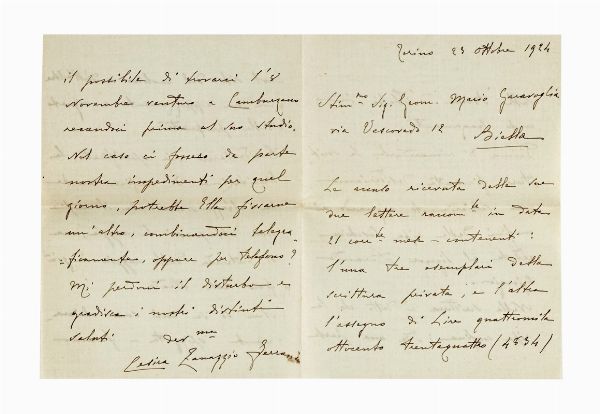 Torino 23 Ottobre 1924
Stim.mo Sig. Geom. Mario Garavoglia
via Vescovado 12
Biella
Le accuso ricevuta delle sue
due lettere raccom.te in data
21 corr.te mese - contenenti:
l'una tre esemplari della
scrittura privata; e l'altra
l'assegno di Lire quattromila
ottocento trentaquattro (4834)
il possibile di trovarci l'8
Novembre venturo a Camburzano
recandoci prima al suo studio.
Nel caso ci fossero da parte
nostra impedimenti per quel
giorno, potrebbe Ella fissarne
un'altro, combinandoci telegra-
ficamente, oppure per telefono?
Mi perdoni il disturbo e
gradisca i nostri distinti
saluti dev.ma